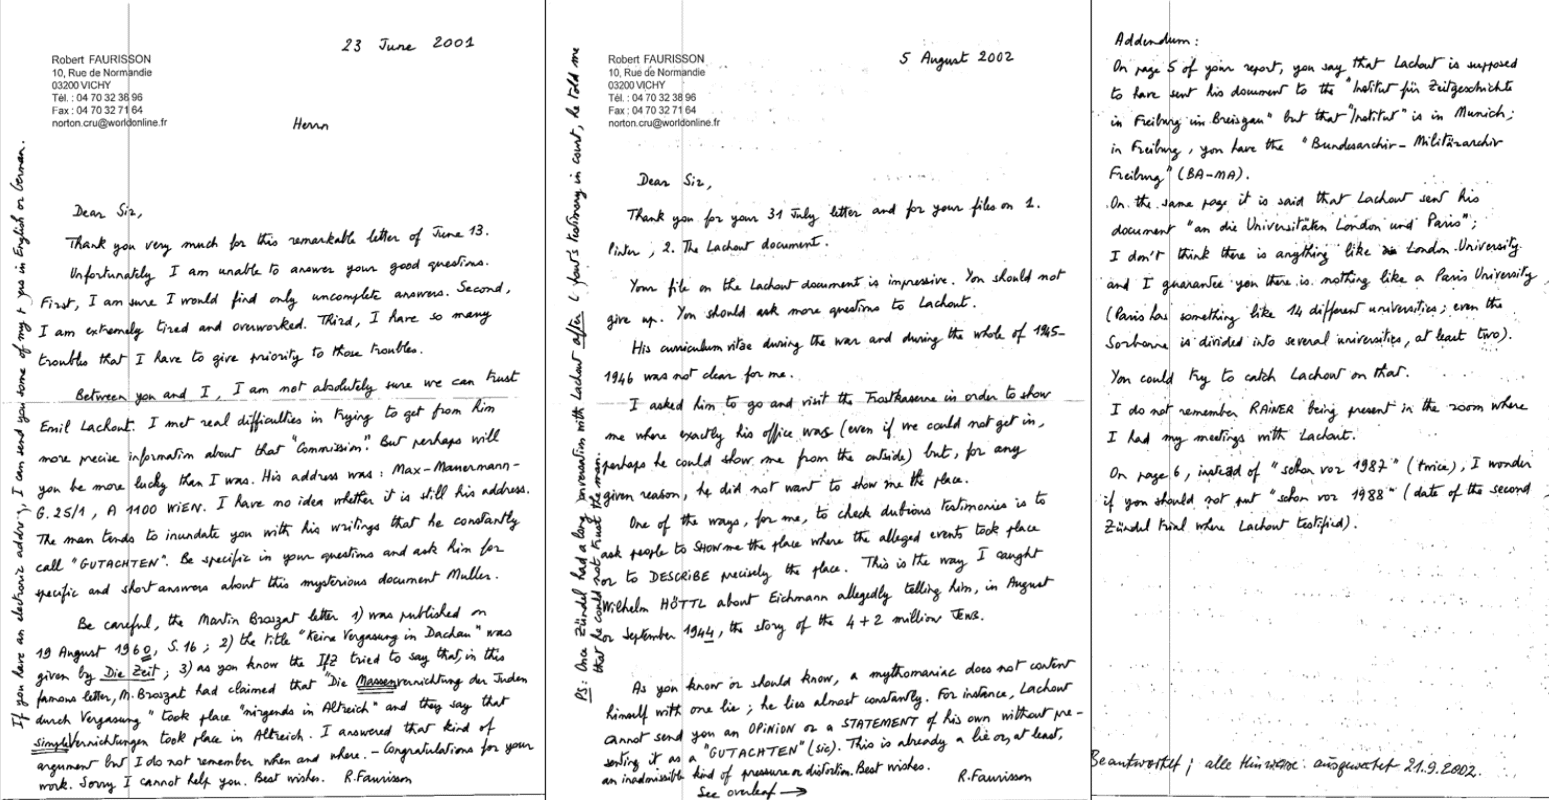 23 June 2001
Robert FAURISSON
10, Rue de Normandie
03200 VICHY
Tél. : 04 70 32 38 96
Fax : 04 70 32 71 64
norton.cru@worldonline.fr
Herrn
Dear Sir,
Thank you very much for this remarkable letter of June 13.
Unfortunately I am unable to answer your good questions.
First, I am sure I would find only uncomplete answers. Second,
I am extremely tired and overworked. Third, I have so many
troubles that I have to give priority to those troubles.
Between you and I, I am not absolutely sure we can trust
Emil Lachout. I met real difficulties in trying to get from him
more precise information about that "Commission". But perhaps will
you be more lucky than I was. His address was : Max-Mauermann-
G. 25/1, A 1100 WIEN. I have no idea whether it is still his address.
The man tends to inundate you with his writings that he constantly
call "GUTACHTEN". Be specific in your questions and ask him for
specific and short answers about this mysterious document Muller.
Be careful, the Martin Broszat letter 1) was published on
19 August 1960, S.16 ; 2) the title "Keine Vergasung in Dachau" was
given by Die Zeit ; 3) as you know the IfZ tried to say that, in this
famous letter, M. Broszat had claimed that "Die Massenvernichtung der Juden
durch Vergasung" took place "nirgends in Altreich" and they say that
simple Vernichtungen took place in Altreich. I answered that kind of
argument but I do not remember when and where. - Congratulations for your
work. Sorry I cannot help you. Best wishes. R.Faurisson
If you have an electronic address, I can send you some of my in English or German.
5 August 2002
Robert FAURISSON
10, Rue de Normandie
03200 VICHY
Tél. : 04 70 32 38 96
Fax : 04 70 32 71 64
norton.cru@worldonline.fr
Dear Sir,
Thank you for your 31 July letter and for your files on 1.
Pinter ; 2. The Lachout document.
Your file on the Lachout document is impressive. You should not
give up. You should ask more questions to Lachout.
His curriculum vitae during the war and during the whole of 1945-
1946 was not clear for me.
I asked him to go and visit the Trostkaserne in order to show
me where exactly his office was (even if we could not get in,
perhaps he could show me from the outside) but, for any
given reason, he did not want to show me the place.
One of the ways, for me, to check dubious testimonies is to
ask people to SHOW me the place where the alleged events took place
or to DESCRIBE precisely the place. This is the way I caught
Wilhelm HÖTTL about Eichmann allegedly telling him, in August
or September 1944, the story of the 4+2 million Jews.
As you know or should know, a mythomaniac does not content
himself with one lie ; he lies almost constantly. For instance, Lachout
cannot send you an OPINION or a STATEMENT of his own without pre-
senting it as a "GUTACHTEN" (sic). This is already a lie or, at least,
an inadmissible kind of pressure or distortion. Best wishes.
R.Faurisson
See overleaf →
PS : Once Zündel had a long conversation with Lachout after L. testimony in court, he told me
that he could not trust the man.
Addendum :
On page 5 of your report, you say that Lachout is supposed
to have sent his document to the "Institut für Zeitgeschichte
in Freiburg im Breisgau" but that "Institut" is in Munich ;
in Freiburg, you have the "Bundesarchiv - Militärarchiv
Freiburg" (BA-MA).
On the same page it is said that Lachout sent his
document "an die Universitäten London und Paris" ;
I don't think there is anything like London University
and I guarantee you there is nothing like a Paris University
(Paris has something like 14 different universities ; even the
Sorbonne is divided into several universities, at least two).
You could try to catch Lachout on that.
I do not remember RAINER being present in the room where
I had my meetings with Lachout.
On page 6, instead of "schon vor 1987" (twice), I wonder
if you should not put "schon vor 1988" (date of the second
Zündel trial where Lachout testified).
Beantwortet ; alle Hinweise ausgewertet 21.9.2002.